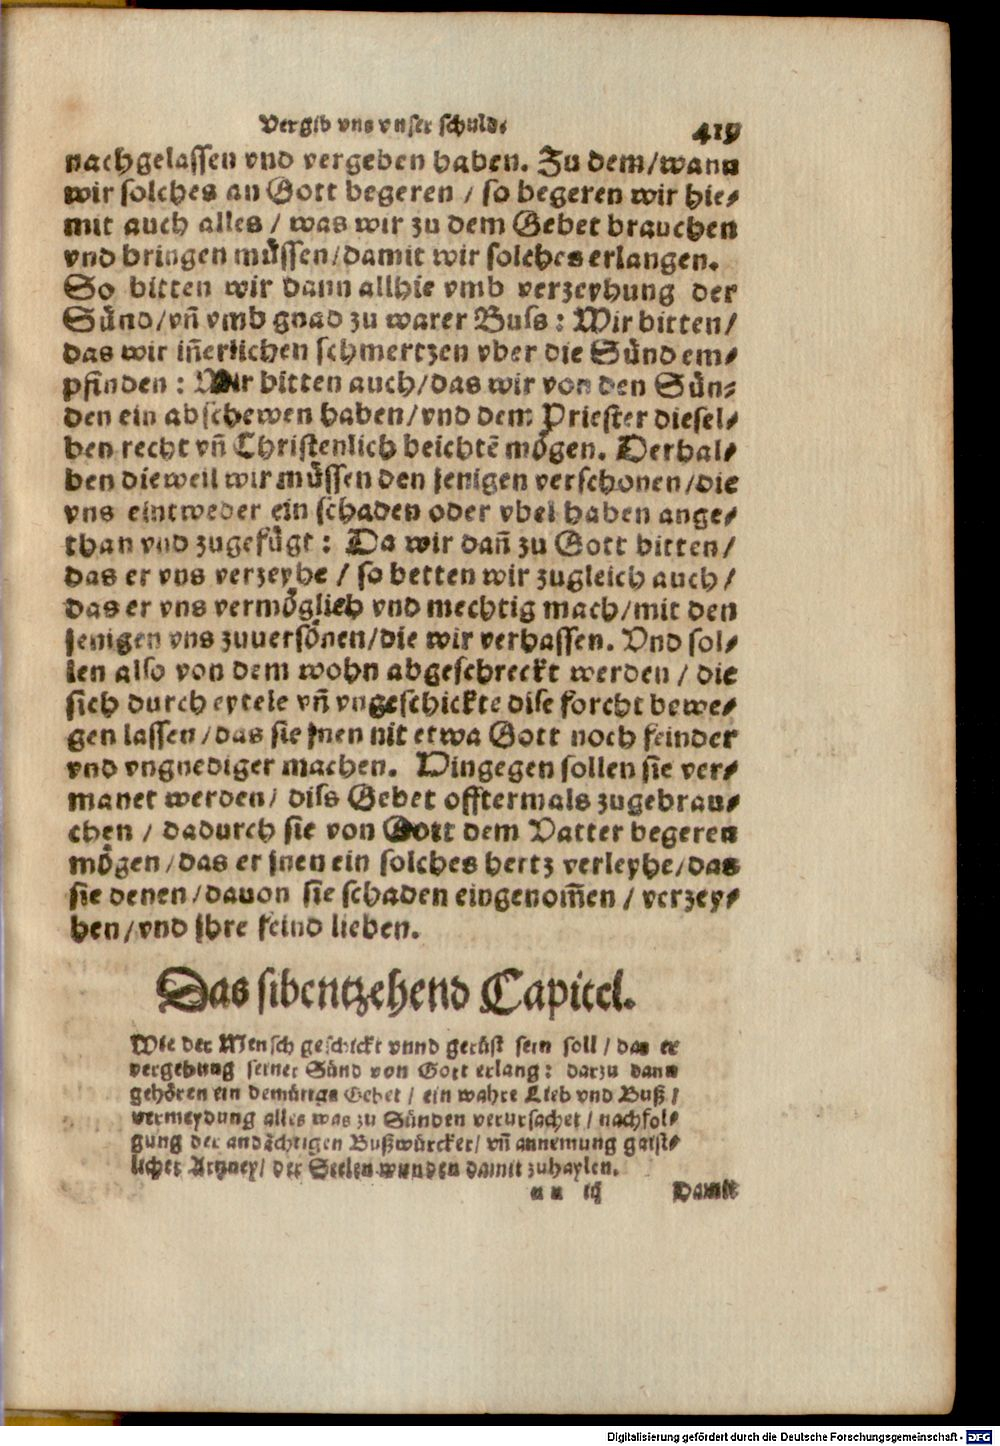 Vergib vns vnser schuld.
419
nachgelassen vnd vergeben haben. Zu dem/wann
wir solches an Gott begeren / so begeren wir hie⸗
mit auch alles / was wir zu dem Gebet brauchen
vnd bringen müssen/damit wir solches erlangen.
So bitten wir dann allhie vmb verzeyhung der
Sünd/vn̄ vmb gnad zu warer Buss: Wir bitten/
das wir iñerlichen schmertzen vber die Sünd em⸗
pfinden: Wir bitten auch/das wir von den Sün⸗
den ein abschewen haben/vnd dem Priester diesel⸗
ben recht vn̄ Christenlich beichtē mögen. Derhal⸗
ben dieweil wir müssen den jenigen verschonen/die
vns eintweder ein schaden oder vbel haben ange⸗
than vnd zugefügt: Da wir dañ zu Gott bitten/
das er vns verzeyhe / so betten wir zugleich auch/
das er vns vermöglich vnd mechtig mach/mit den
jenigen vns zuuersönen/die wir verhassen. Vnd sol⸗
len also von dem wohn abgeschreckt werden / die
sich durch eytele vn̄ vngeschickte dise forcht bewe⸗
gen lassen/das sie jnen nit etwa Gott noch feinder
vnd vngnediger machen. Hingegen sollen sie ver⸗
manet werden/ diss Gebet offtermals zugebrau⸗
chen / dadurch sie von Gott dem Vatter begeren
mögen/das er jnen ein solches hertz verleyhe/das
sie denen/dauon sie schaden eingenom̄en / verzey⸗
hen/vnd jhre feind lieben.
Das sibentzehend Capitel.
Wie der Mensch geschickt vnnd gerüst sein soll / das er
vergebung seiner Sünd von Gott erlang: darzu dann
gehören ein demütigs Gebet / ein wahre Lieb vnd Buß /
vermeydung alles was zu Sünden verursachet / nachfol⸗
gung der andächtigen Bußwürcker/ vn̄ annemung geist⸗
licher Artzney/ der Seelen wunden damit zuhaylen.
nn iij
Damit
Digitalisierung gefördert durch die Deutsche Forschungsgemeinschaft - DFG